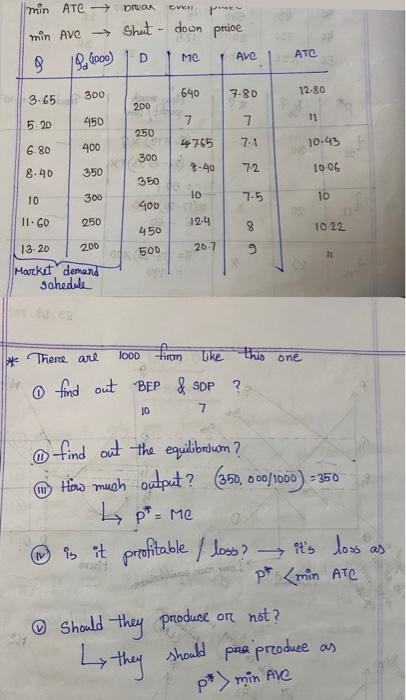 min ATC → break even
min AVC → Shut - down price
Q Qd(000) D MC AVC ATC
3.65 300 200 640 7.80 12.80
5.20 450 250 7 7 11
6.80 400 300 4765 7.1 10.43
8.40 350 350 8.40 7.2 10.06
10 300 400 10 7.5 10
11.60 250 450 12.4 8 10.22
13.20 200 500 20.7 9 11
Market demand
schedule
* There are 1000 firm like this one
(i) find out BEP & SDP ?
10 7
(ii) find out the equilibrium?
(iii) How much output? (350,000/1000) = 350
↳ p* = MC
(iv) is it profitable / loss? → it's loss as
p* < min ATC
(v) Should they produce or not?
↳ they should produce as
p* > min AVC